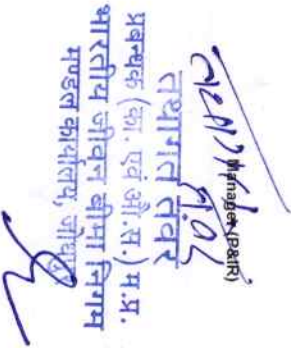 Manager (P&IR)
तथागत तंवर
प्रबन्धक (का. एवं औ.स.) म.प्र.
भारतीय जीवन बीमा निगम
मण्डल कार्यालय,